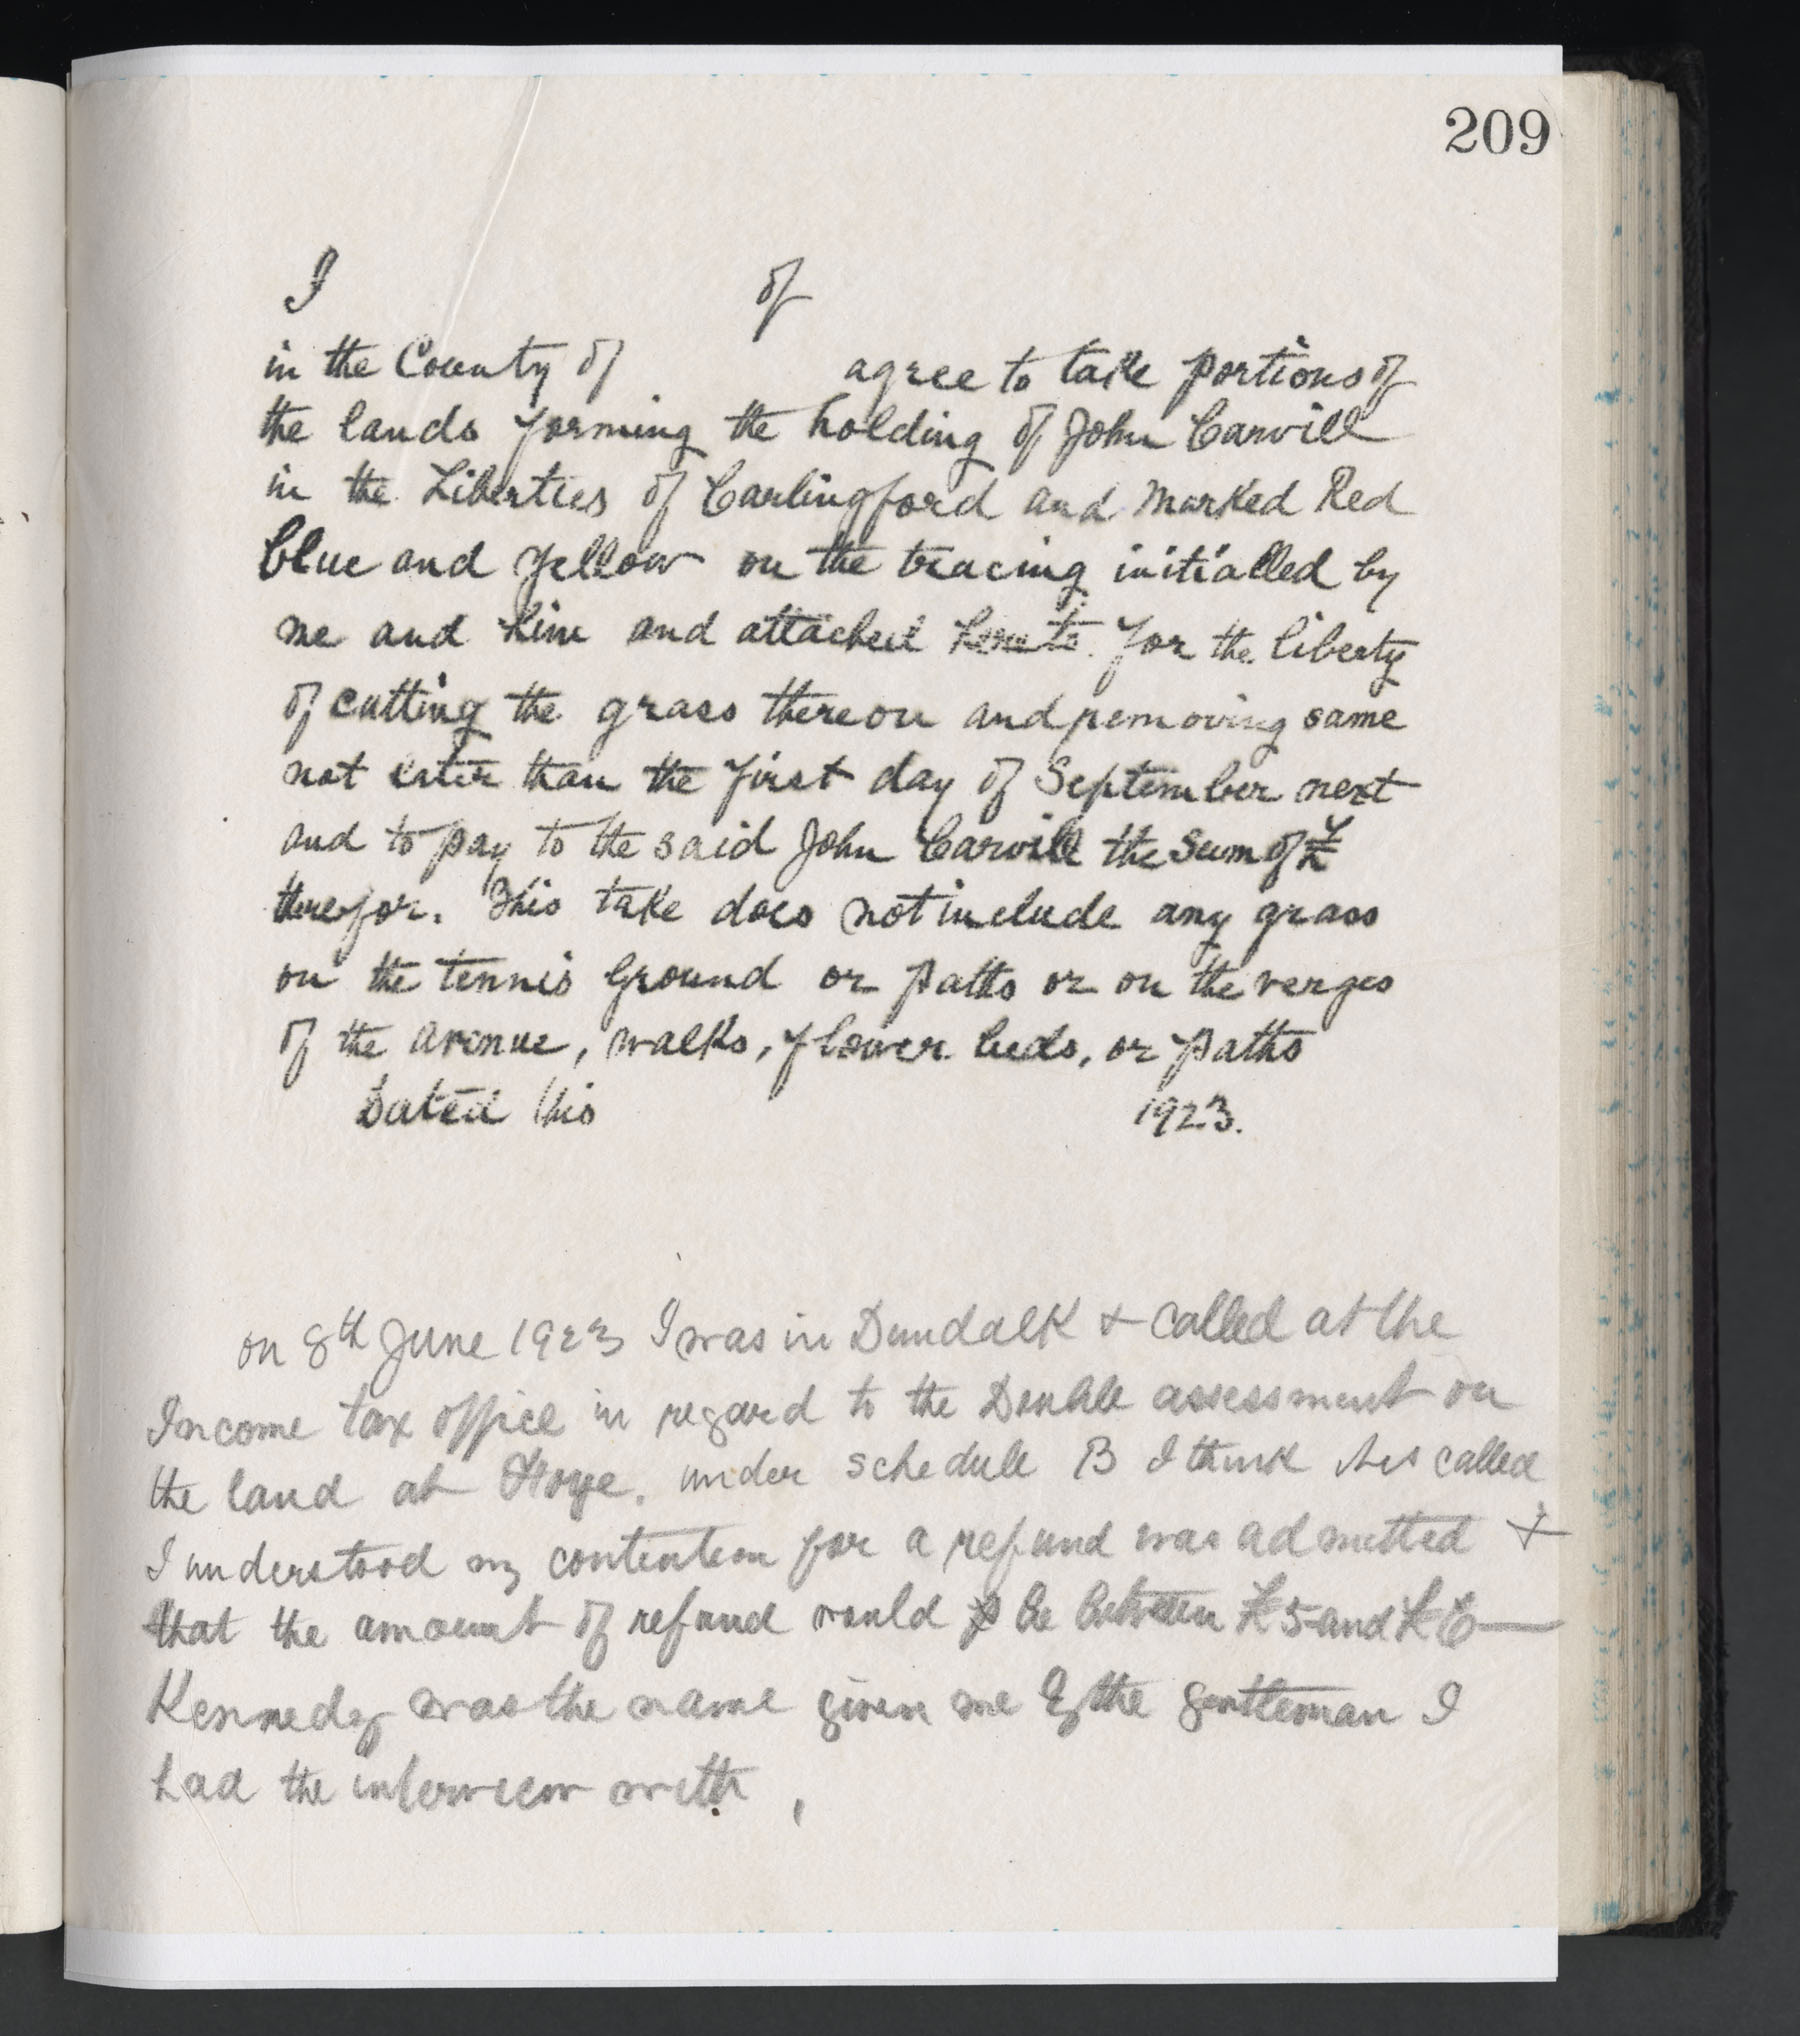 209
I of
in the County of agree to take portions of
the lands forming the holding of John Carvill
in the Liberties of Carlingford and marked Red
blue and yellow on the tracing initialled by
me and him and attached hereto. for the liberty
of cutting the grass thereon and removing same
not later than the first day of September next
and to pay to the said John Carvill the sum of £
therefor. This take does not include any grass
on the tennis ground or paths or on the verges
of the avenue, walks, flower beds, or paths
Dated this 1923.
on 8th June 1923 I was in Dundalk & called at the
Income tax office in regard to the Double assessment on
the land at under schedule B I think its called
I understood my contention for a refund was admitted &
that the amount of refund would be between £5 and £6
Kennedy was the name given me by the gentleman I
had the interview with,